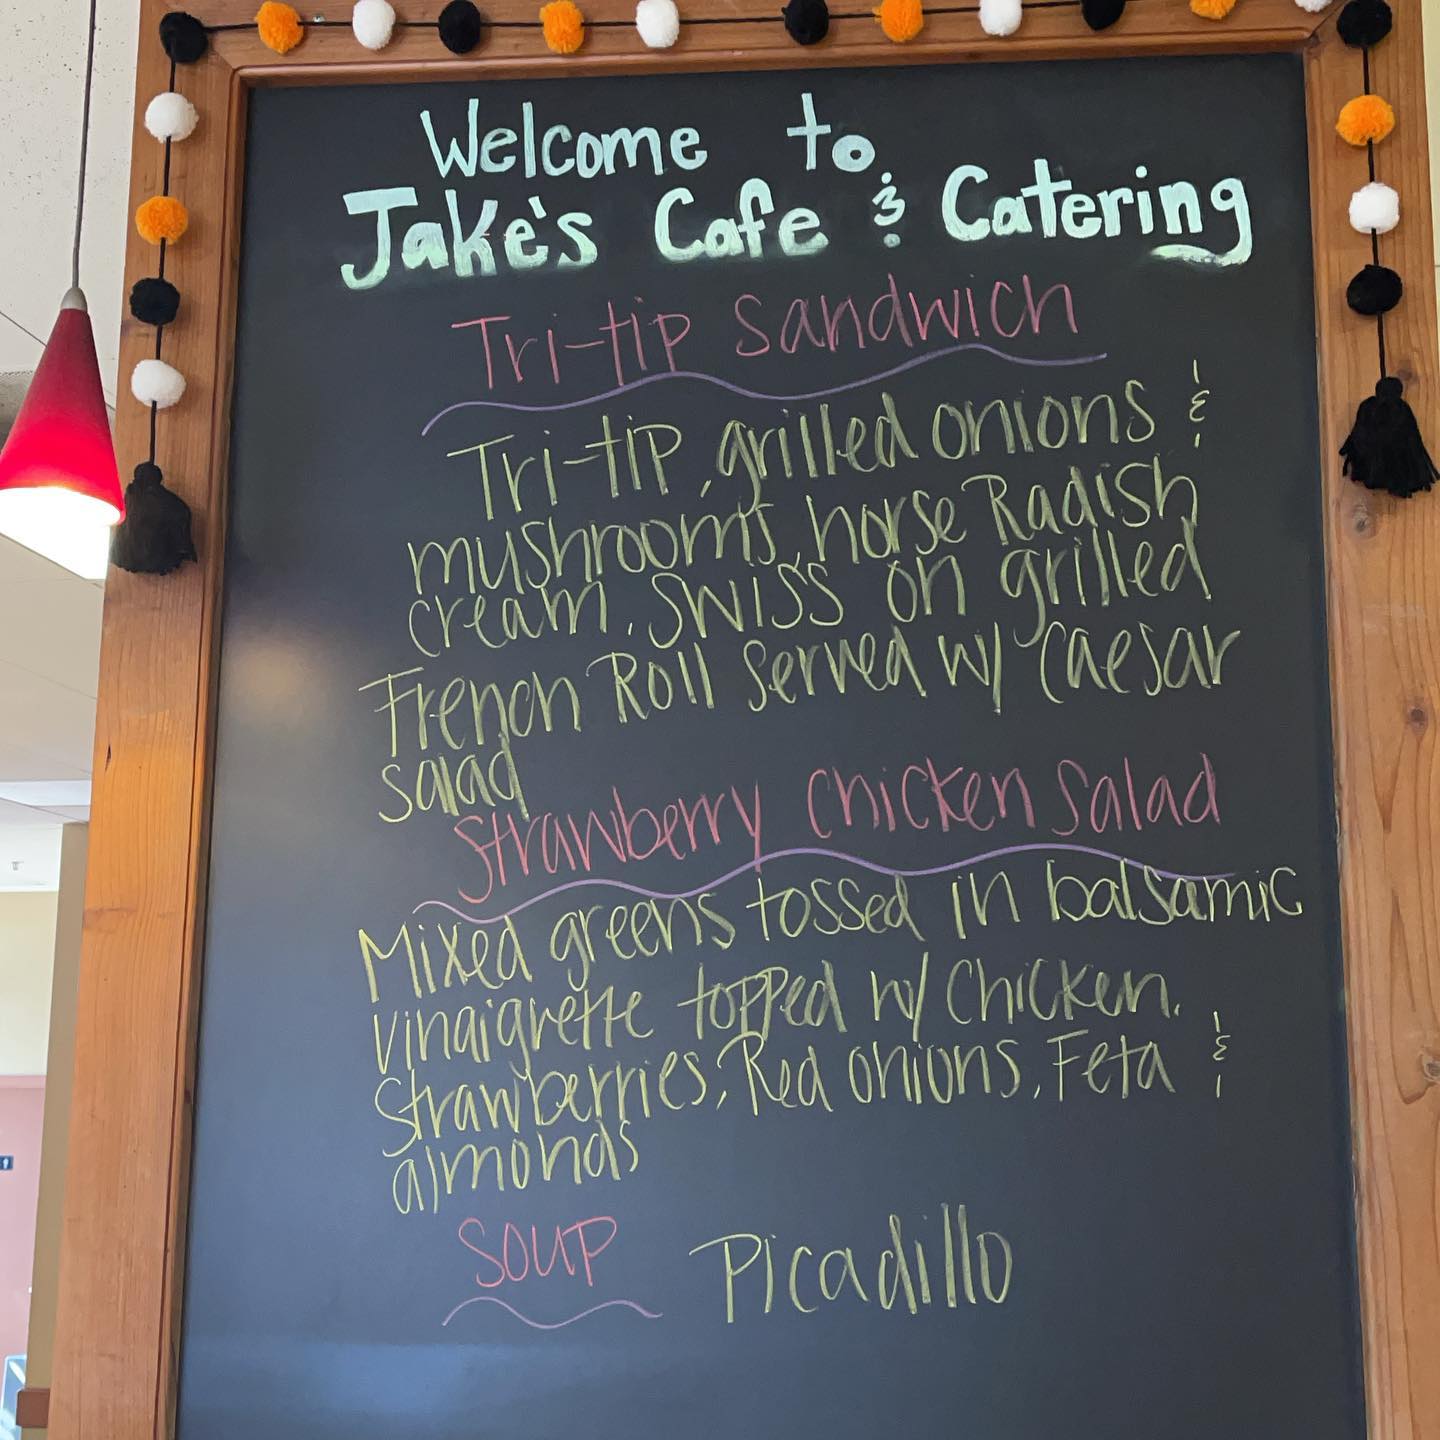 Welcome to
Jake's Cafe & Catering
Tri-tip Sandwich
Tri-tip, grilled onions &
mushrooms, horse Radish
cream, swiss on grilled
French Roll served w/ caesar
salad
Strawberry chicken salad
Mixed greens tossed in balsamic
vinaigrette topped w/ chicken,
strawberries, Red onions, Feta &
almonds
SOUP Picadillo